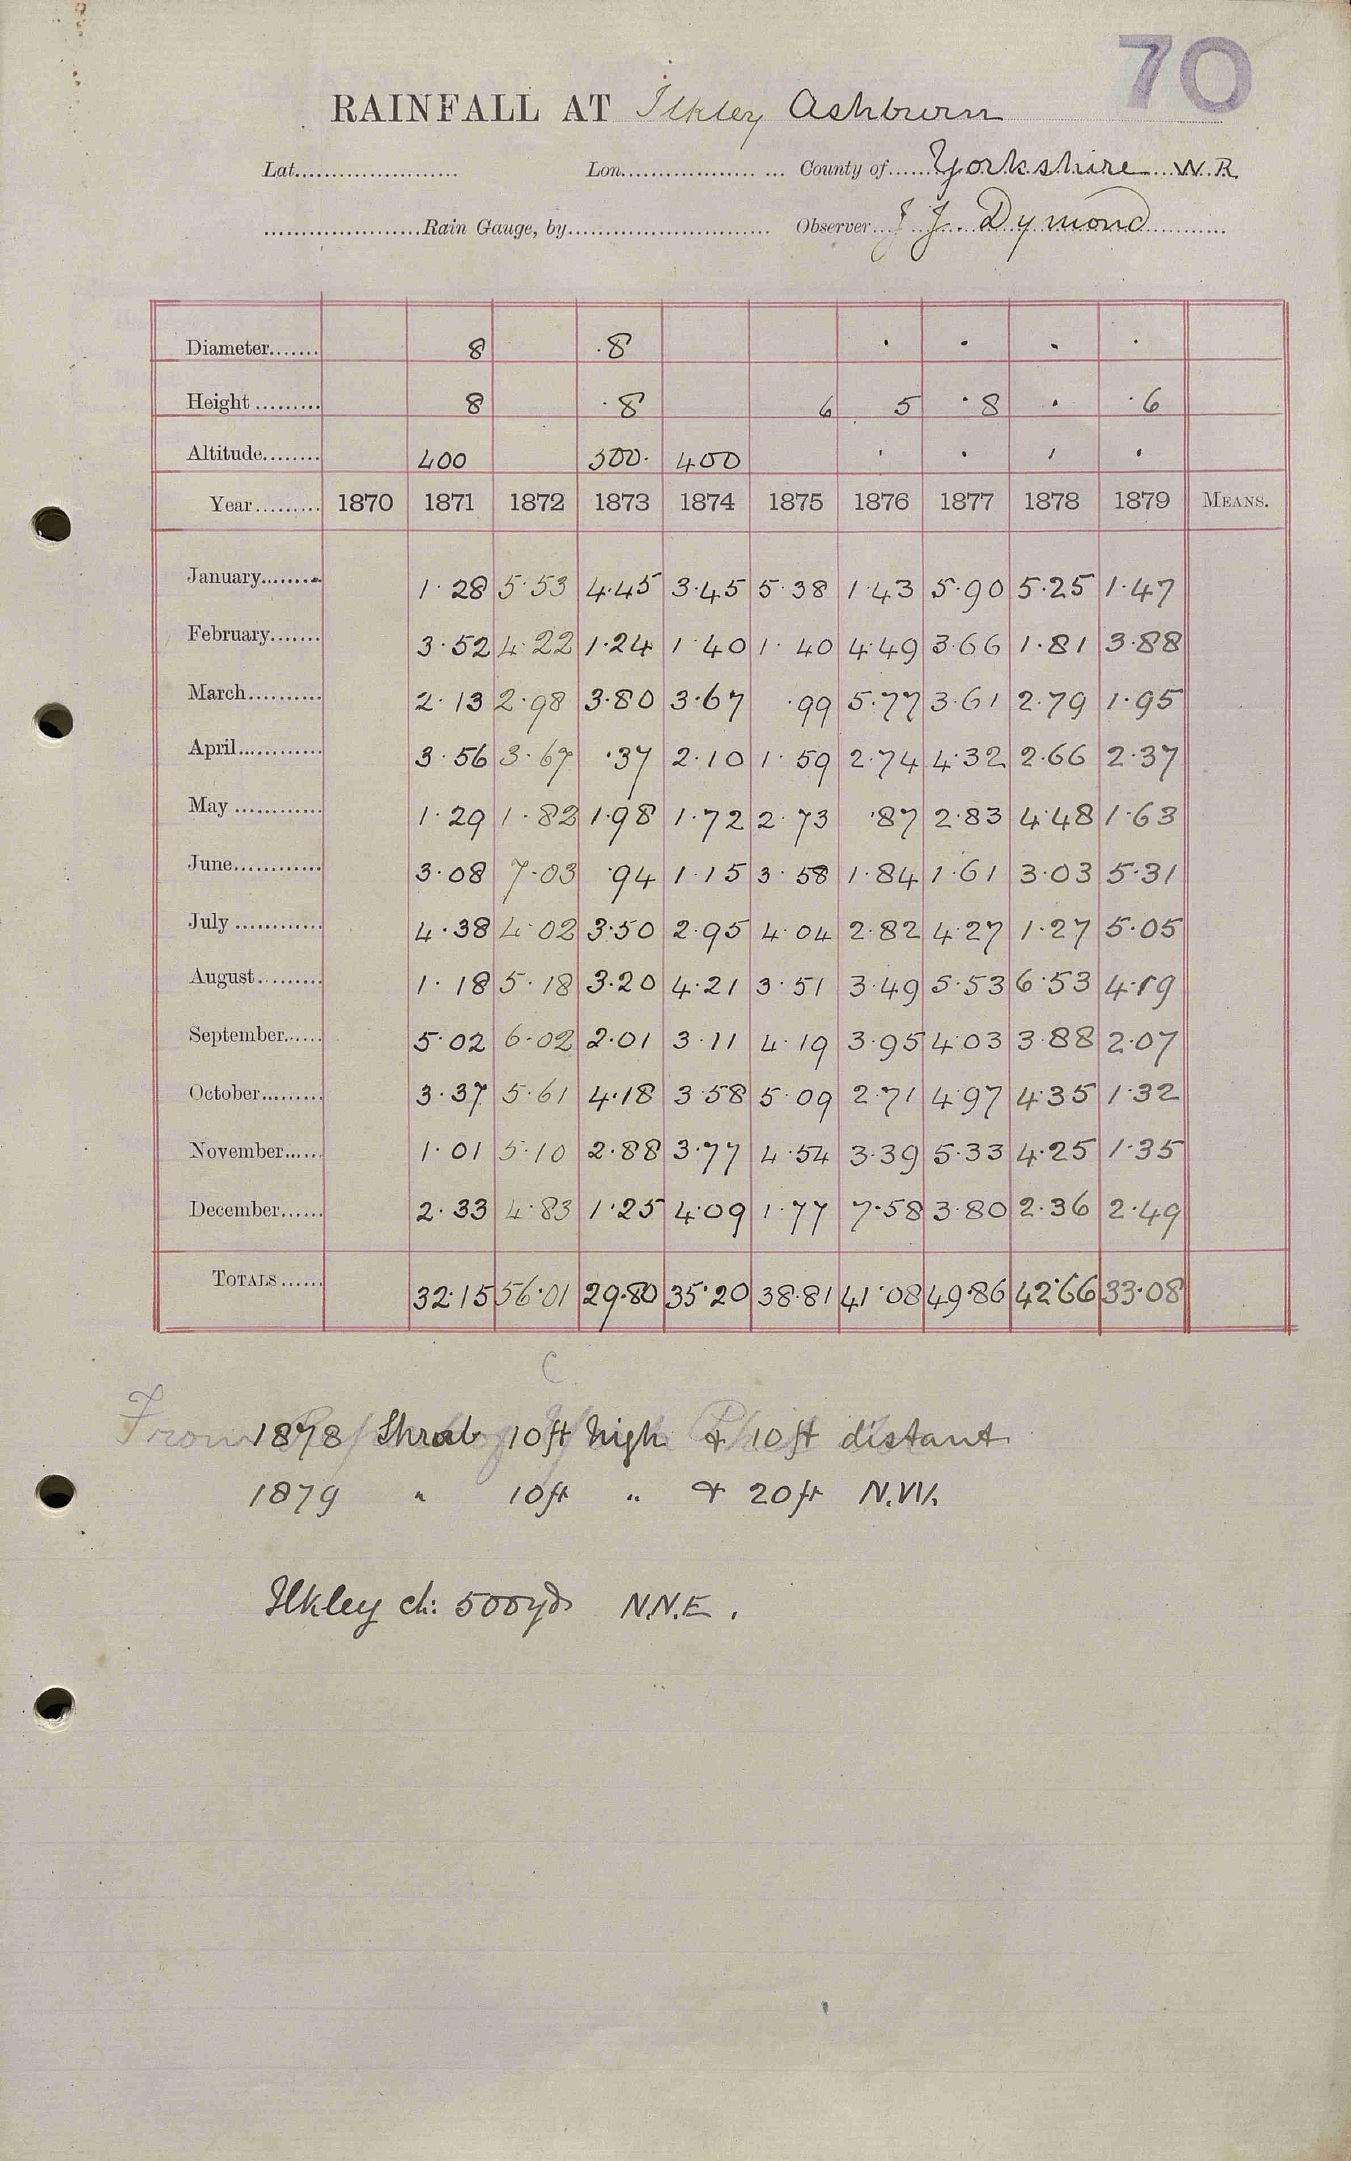 70
RAINFALL AT Ilkley Ashburn
Lat. Lon. County of Yorkshire W.R.
Rain Gauge, by Observer J. J. Dymond
Diameter 8 .8 . . . .
Height 8 .8 6 5 .8 . .6
Altitude 400 500. 400 . . . .
Year 1870 1871 1872 1873 1874 1875 1876 1877 1878 1879 MEANS.
January 1.28 5.53 4.45 3.45 5.38 1.43 5.90 5.25 1.47
February 3.52 4.22 1.24 1.40 1.40 4.49 3.66 1.81 3.88
March 2.13 2.98 3.80 3.67 .99 5.77 3.61 2.79 1.95
April 3.56 3.67 .37 2.10 1.59 2.74 4.32 2.66 2.37
May 1.29 1.82 1.98 1.72 2.73 .87 2.83 4.48 1.63
June 3.08 7.03 .94 1.15 3.58 1.84 1.61 3.03 5.31
July 4.38 4.02 3.50 2.95 4.04 2.82 4.27 1.27 5.05
August 1.18 5.18 3.20 4.21 3.51 3.49 5.53 6.53 4.19
September 5.02 6.02 2.01 3.11 4.19 3.95 4.03 3.88 2.07
October 3.37 5.61 4.18 3.58 5.09 2.71 4.97 4.35 1.32
November 1.01 5.10 2.88 3.77 4.54 3.39 5.33 4.25 1.35
December 2.33 4.83 1.25 4.09 1.77 7.58 3.80 2.36 2.49
TOTALS 32.15 56.01 29.80 35.20 38.81 41.08 49.86 42.66 33.08
C
From
1878 Shrub 10ft high & 10ft distant
1879 " 10ft " & 20ft N.W.
Ilkley ch: 500yds N.N.E.